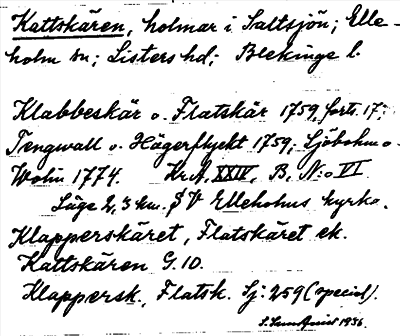 Kattskären, holmar i Saltsjön; Elle-
holm sn; Listers hd; Blekinge l.
Klabbeskär o. Flatskär 1759, forts. 17;
Tengwall o. Hägerflyckt 1759; Sjöbohm o.
Wolin 1774. Kr. A. XXIV, B, N:o VI
Läge 2,3 km. S V Elleholms kyrka.
Klapperskäret, Flatskäret ek.
Kattskären G. 10.
Klappersk., Flatsk. Sj: 259 (special).
1936.